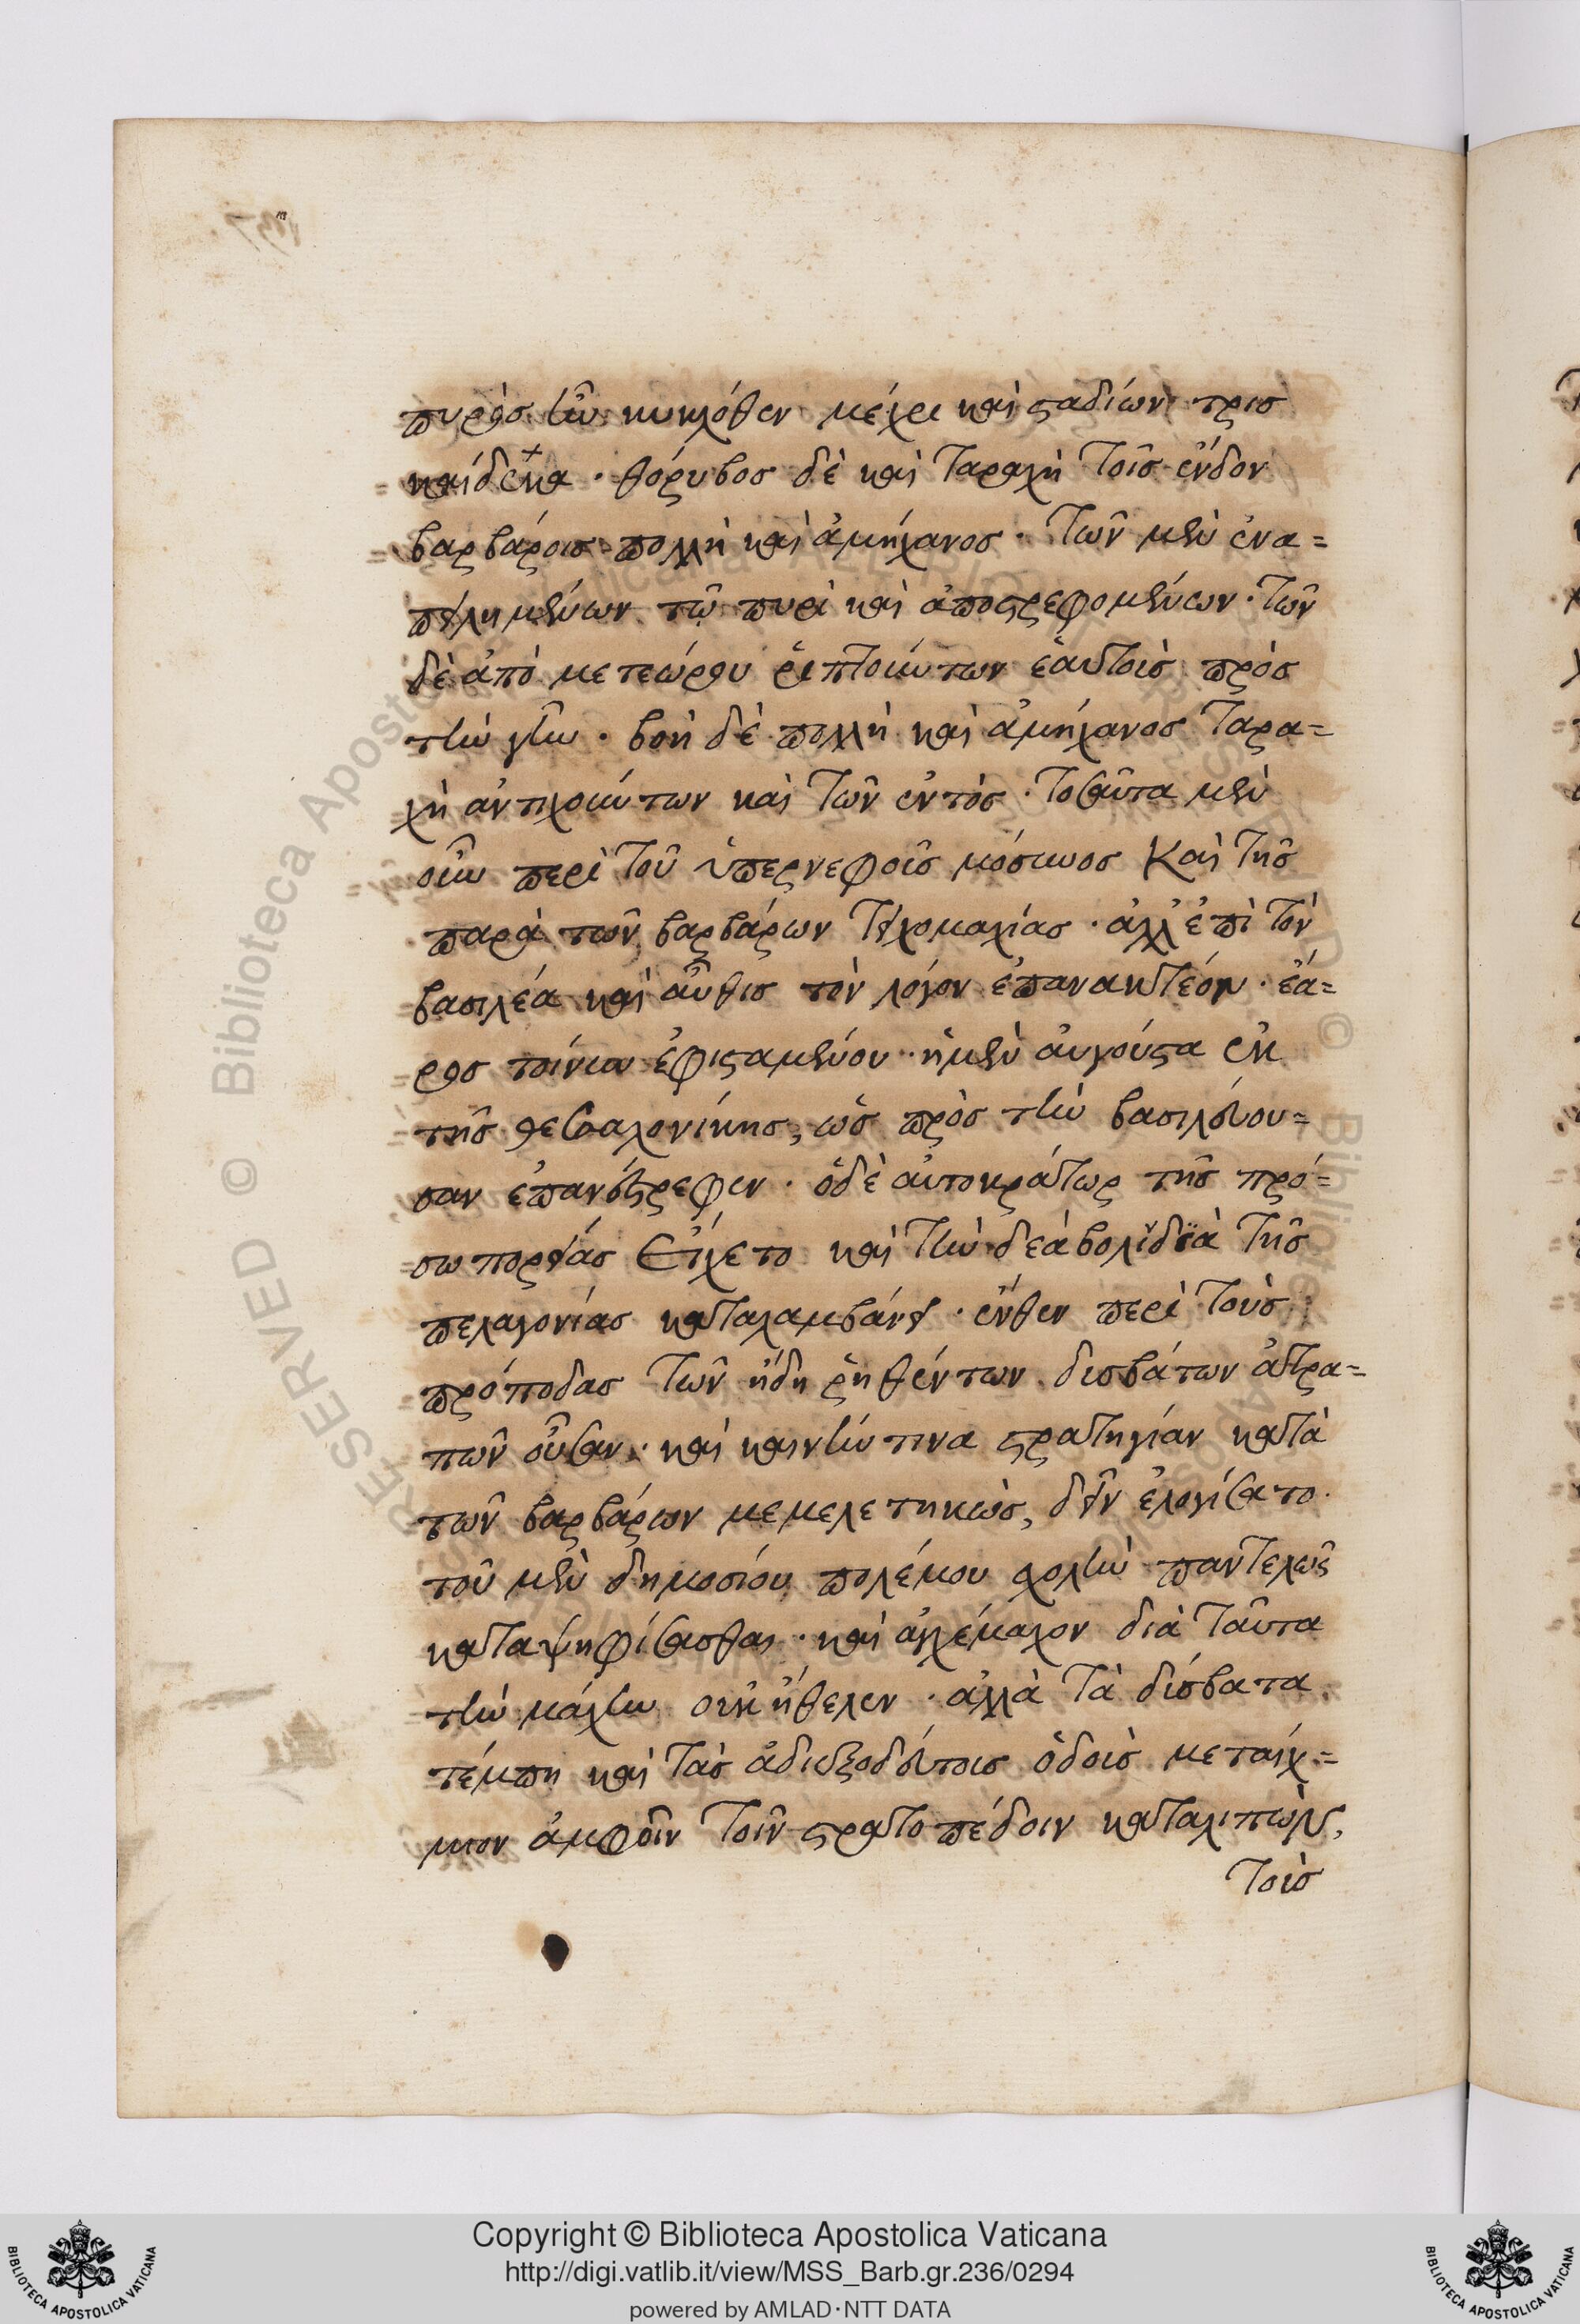 πυρὸς ἦν κυκλόθεν μέχρι καὶ σταδίων τρισ
καίδεκα · θόρυβος δὲ καὶ ταραχὴ τοῖς ἔνδον
βαρβάροις πολλὴ καὶ ἀμήχανος · τῶν μὲν ἐνα=
πειλημμένων τῷ πυρὶ καὶ ἀποστρεφομένων · τῶν
δὲ ἀπὸ μετεώρου ῥιπτούντων ἑαυτοὺς πρὸς
τὴν γῆν · βοὴ δὲ πολλὴ καὶ ἀμήχανος ταρα=
χὴ ἀντηχούντων καὶ τῶν ἐντὸς · τοσαῦτα μὲν
οὖν περὶ τοῦ ὑπερνεφοῦς μόσυνος καὶ τῆς
παρὰ τῶν βαρβάρων τειχομαχίας · ἀλλ' ἐπὶ τὸν
βασιλέα καὶ αὖθις τὸν λόγον ἐπανακτέον · ἔα=
ρος τοίνυν ἐφισταμένου · ἡ μὲν αὐγούστα ἐκ
τῆς θεσσαλονίκης, ὡς πρὸς τὴν βασιλεύου=
σαν ἐπανέστρεφεν · ὁ δὲ αὐτοκράτωρ τῆς πρό=
σω πορείας εἴχετο καὶ τὴν δεάβολιν διὰ τῆς
πελαγονίας καταλαμβάνει · ἔνθεν περὶ τοὺς
πρόποδας τῶν ἤδη ῥηθέντων δυσβάτων ἀτρα=
πῶν οὖσαν · καὶ καινήν τινα στρατηγίαν κατὰ
τῶν βαρβάρων μεμελετηκὼς, δεῖν ἐλογίσατο
τοῦ μὲν δημοσίου πολέμου σχολὴν παντελῶς
καταψηφίσασθαι · καὶ ἀγχέμαχον διὰ ταῦτα
τὴν μάχην οὐκ ἤθελεν · ἀλλὰ τὰ δύσβατα
τέμπη καὶ τὰς ἀδιεξοδεύτους ὁδοὺς μεταίχ=
μιον ἀμφοῖν τοῖν στρατοπέδοιν καταλιπὼν,
τοὺς
Copyright © Biblioteca Apostolica Vaticana
http://digi.vatlib.it/view/MSS_Barb.gr.236/0294
powered by AMLAD·NTT DATA